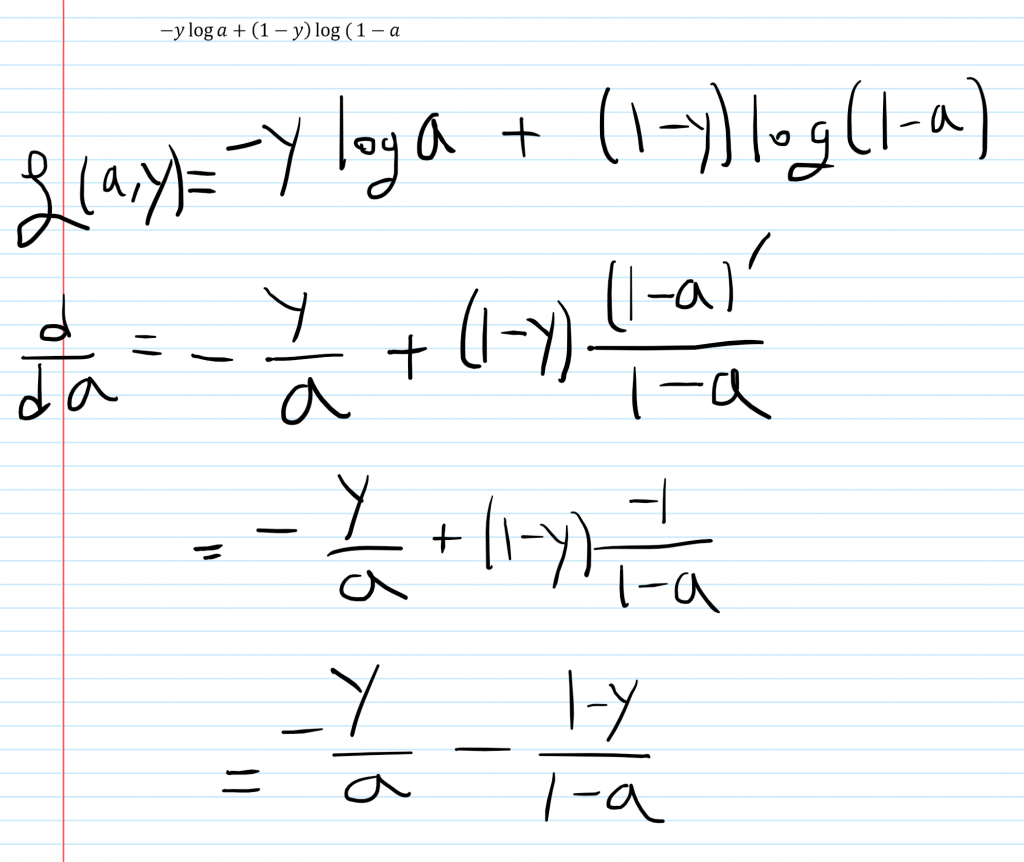 −y log a + (1 − y) log ( 1 − a
L(a,y)= -y log a + (1-y) log(1-a)
d/da = - y/a + (1-y) (1-a)'/1-a
= - y/a + (1-y) -1/1-a
= - y/a - 1-y/1-a